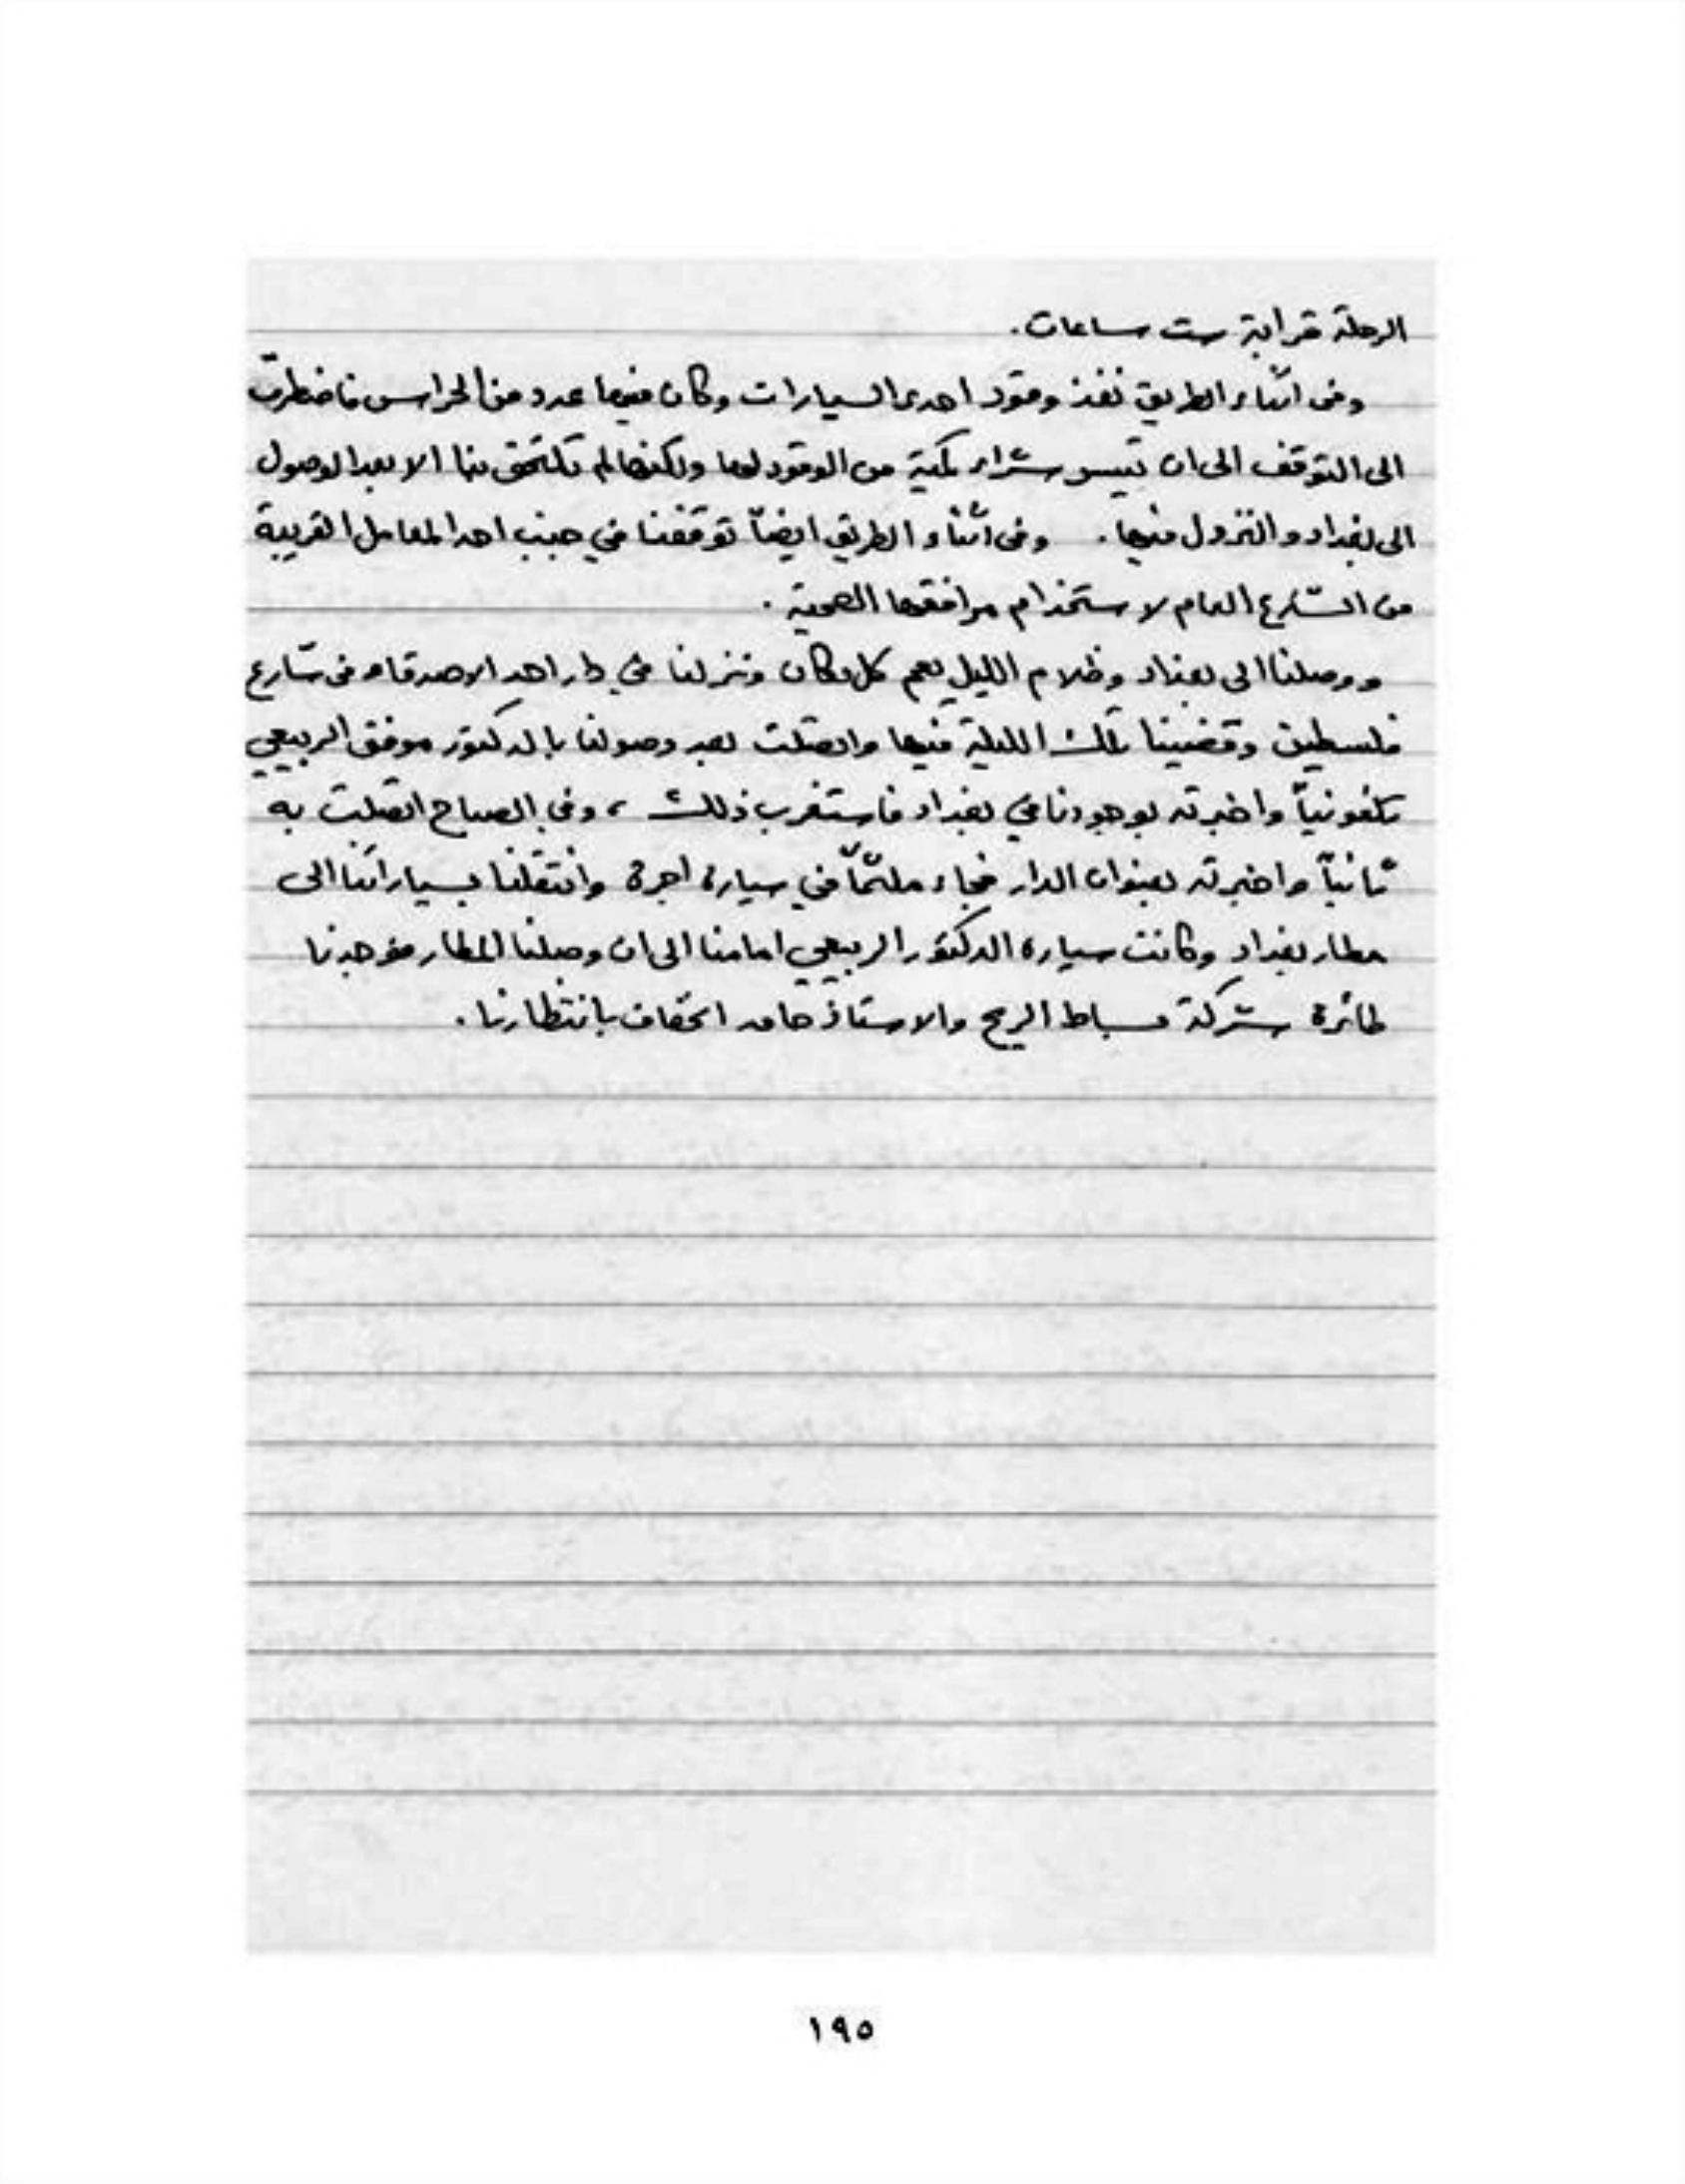 الرحلة قرابة ست ساعات.
وفي اثناء الطريق نفذ وقود احدى السيارات وكان فيها عدد من الحراس فاضطرت
الى التوقف الى ان تيسر شراء كمية من الوقود لها ولكنها لم تلتحق بنا الا بعد الوصول
الى بغداد والنزول فيها. وفي اثناء الطريق ايضاً توقفنا في جنب احد المعامل القريبة
من الشارع العام لاستخدام مرافقها الصحية.
ووصلنا الى بغداد وظلام الليل يعم كل مكان ونزلنا في دار احد الاصدقاء في شارع
فلسطين وقضينا تلك الليلة فيها واتصلت بعد وصولنا بالدكتور موفق الربيعي
تلفونياً واخبرته بوجودنا في بغداد فاستغرب ذلك، وفي الصباح اتصلت به
ثانياً واخبرته بعنوان الدار فجاء ملثماً في سيارة اجرة وانتقلنا بسياراتنا الى
مطار بغداد وكانت سيارة الدكتور الربيعي امامنا الى ان وصلنا المطار فوجدنا
طائرة شركة بساط الريح والاستاذ حامد الخفاف بانتظارنا.
١٩٥